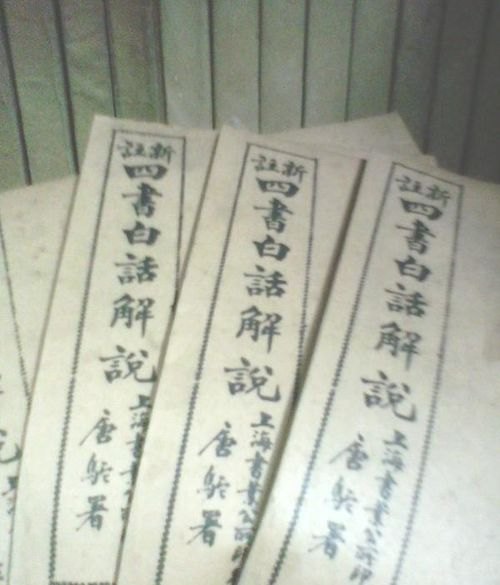 新註
四書白話解說
上海書業公
唐駝署
新註
四書白話解說
上海書業公所印
唐駝署
新註
四書白話解說
上海書業公所印
唐駝署